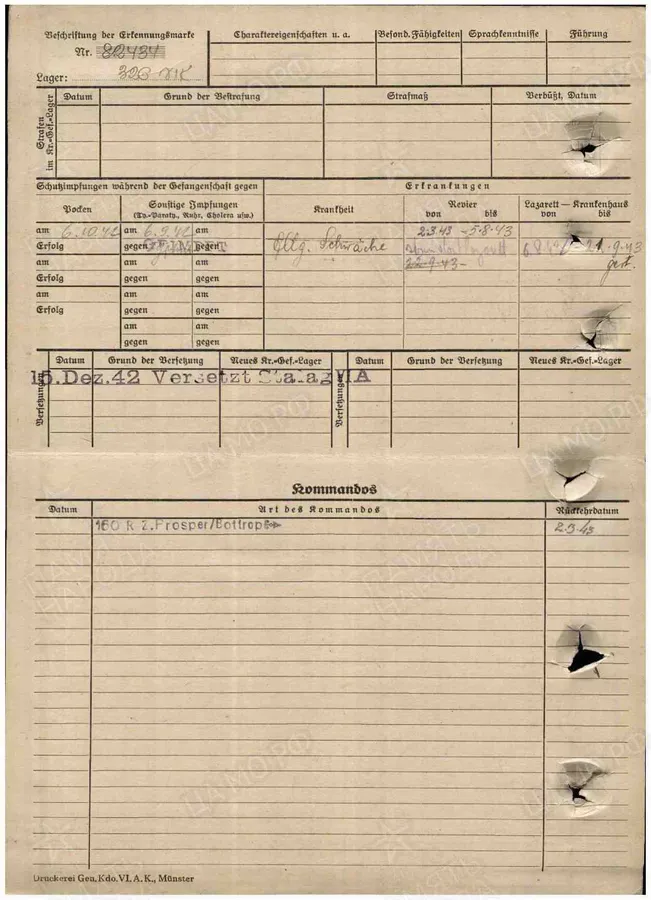 Beschriftung der Erkennungsmarke
Nr. 82434
Lager: 326 VIK
Charaktereigenschaften u. a.
Besond. Fähigkeiten
Sprachkenntnisse
Führung
Strafen im Kr.=Gef.=Lager
Datum
Grund der Bestrafung
Strafmaß
Verbüßt, Datum
Schutzimpfungen während der Gefangenschaft gegen
Erkrankungen
Pocken
Sonstige Impfungen
(Ty.=Paraty., Ruhr, Cholera usw.)
Krankheit
Revier
von bis
Lazarett — Krankenhaus
von bis
am 6.10.42 am 6.9.42 am
2.3.43 - 5.8.43
Erfolg gegen gegen
Allg. Schwäche
21.9.43
am am am
22.9.43 -
gest.
Erfolg gegen gegen
am am am
Erfolg gegen gegen
am am
gegen gegen
Versetzungen
Datum
Grund der Versetzung
Neues Kr.=Gef.=Lager
Versetzungen
Datum
Grund der Versetzung
Neues Kr.=Gef.=Lager
15.Dez.42 Versetzt Stalag VI A
Kommandos
Datum
Art des Kommandos
Rückkehrdatum
160 R Z.Prosper/Bottrop
2.3.43
Druckerei Gen. Kdo. VI. A. K., Münster
ЦАМО РФ
ПАМЯТЬ НАРОДА